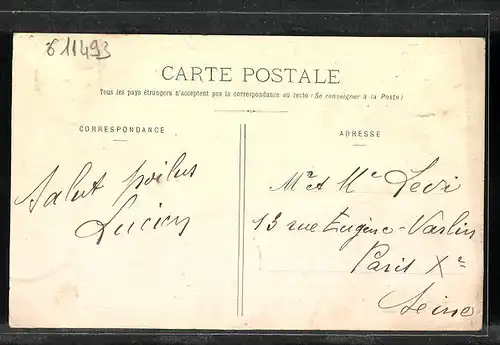 611493
CARTE POSTALE
Tous les pays étrangers n'acceptent pas la correspondance au recto (Se renseigner à la Poste)
CORRESPONDANCE
ADRESSE
Salut poilus
Lucien
Mr et Me Levi
13 rue Eugène-Varlin
Paris Xe
Seine